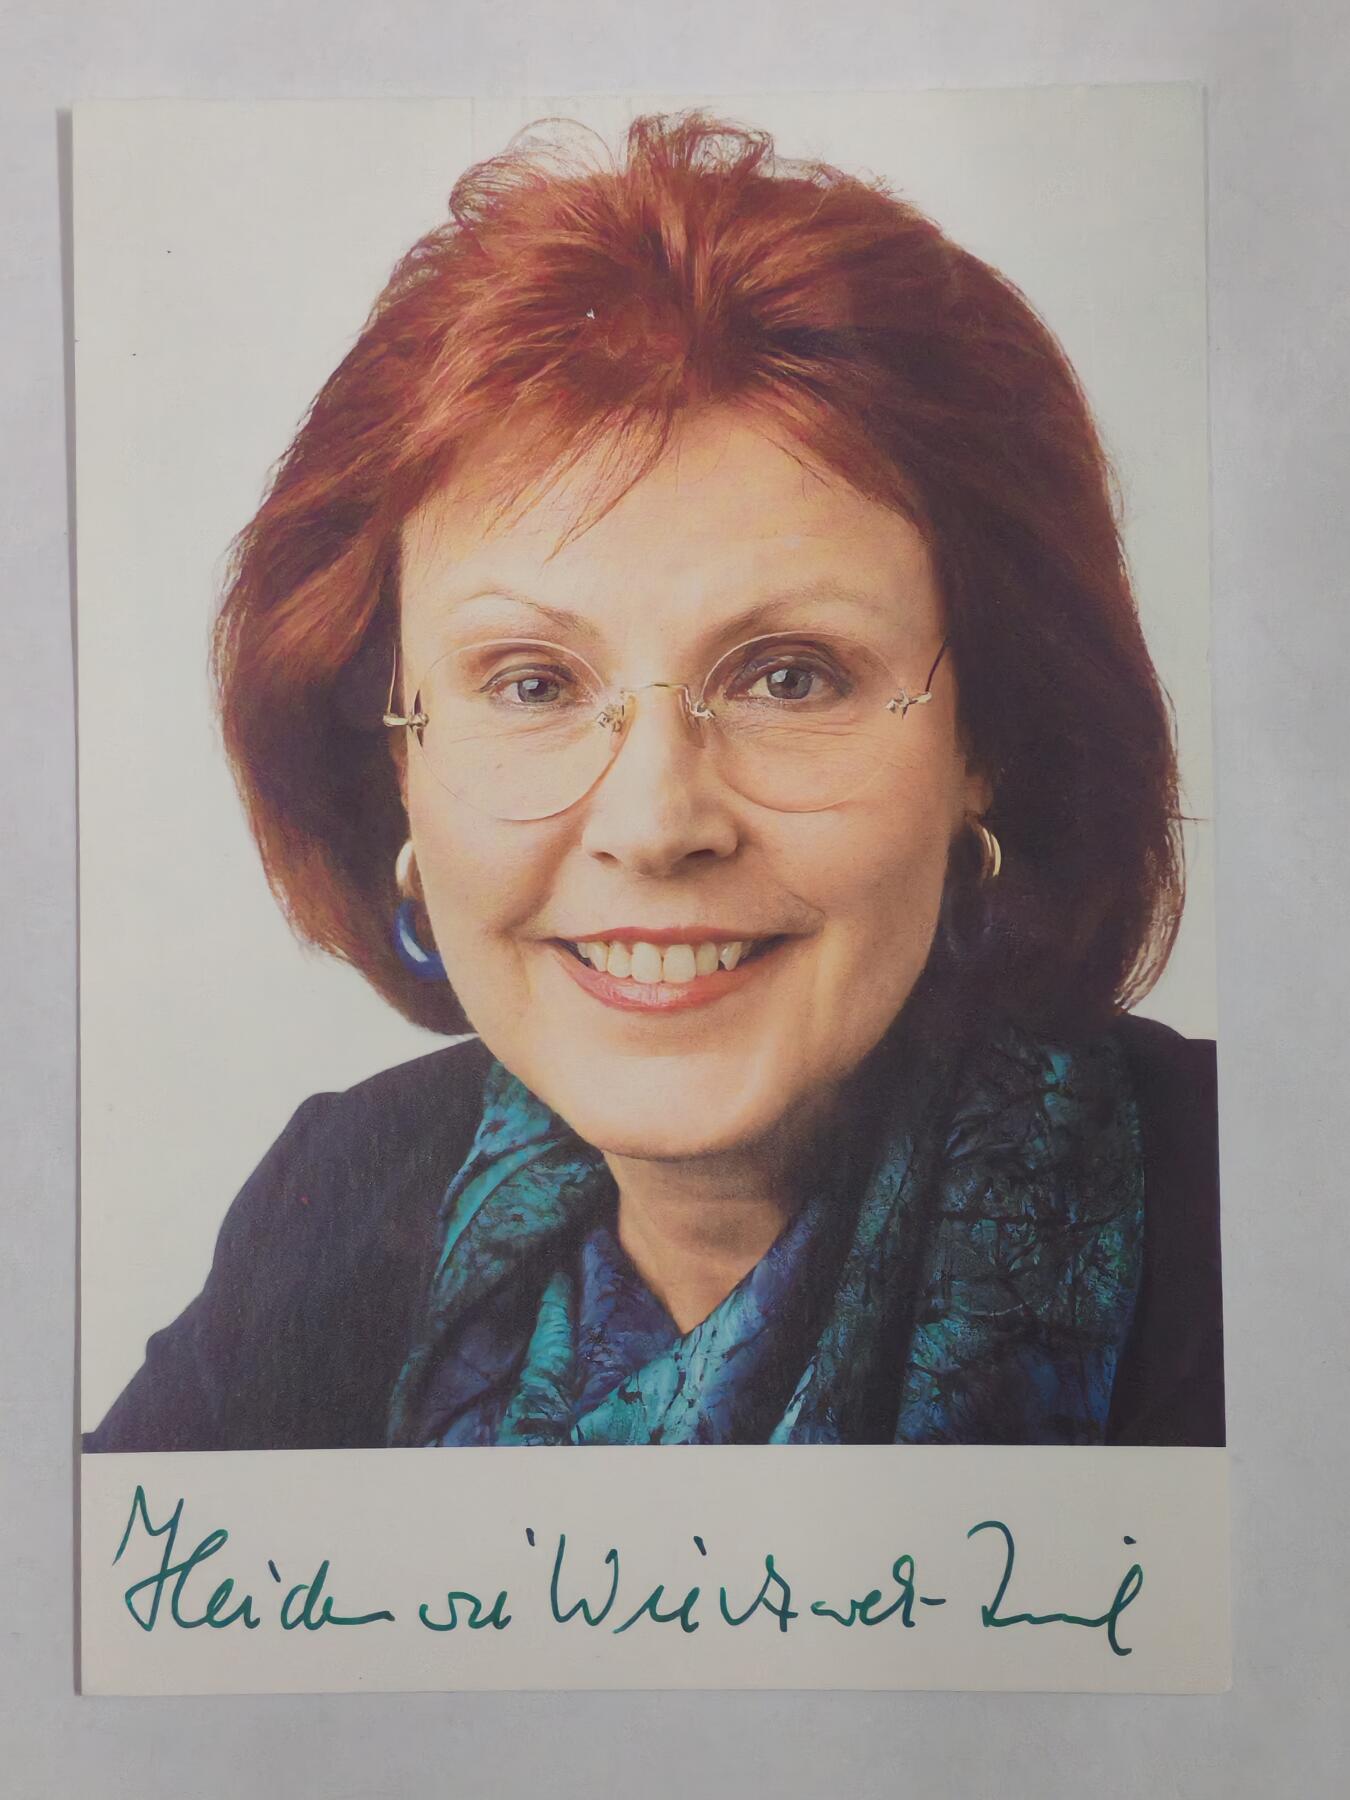 Heidemarie Wieczorek-Zeul